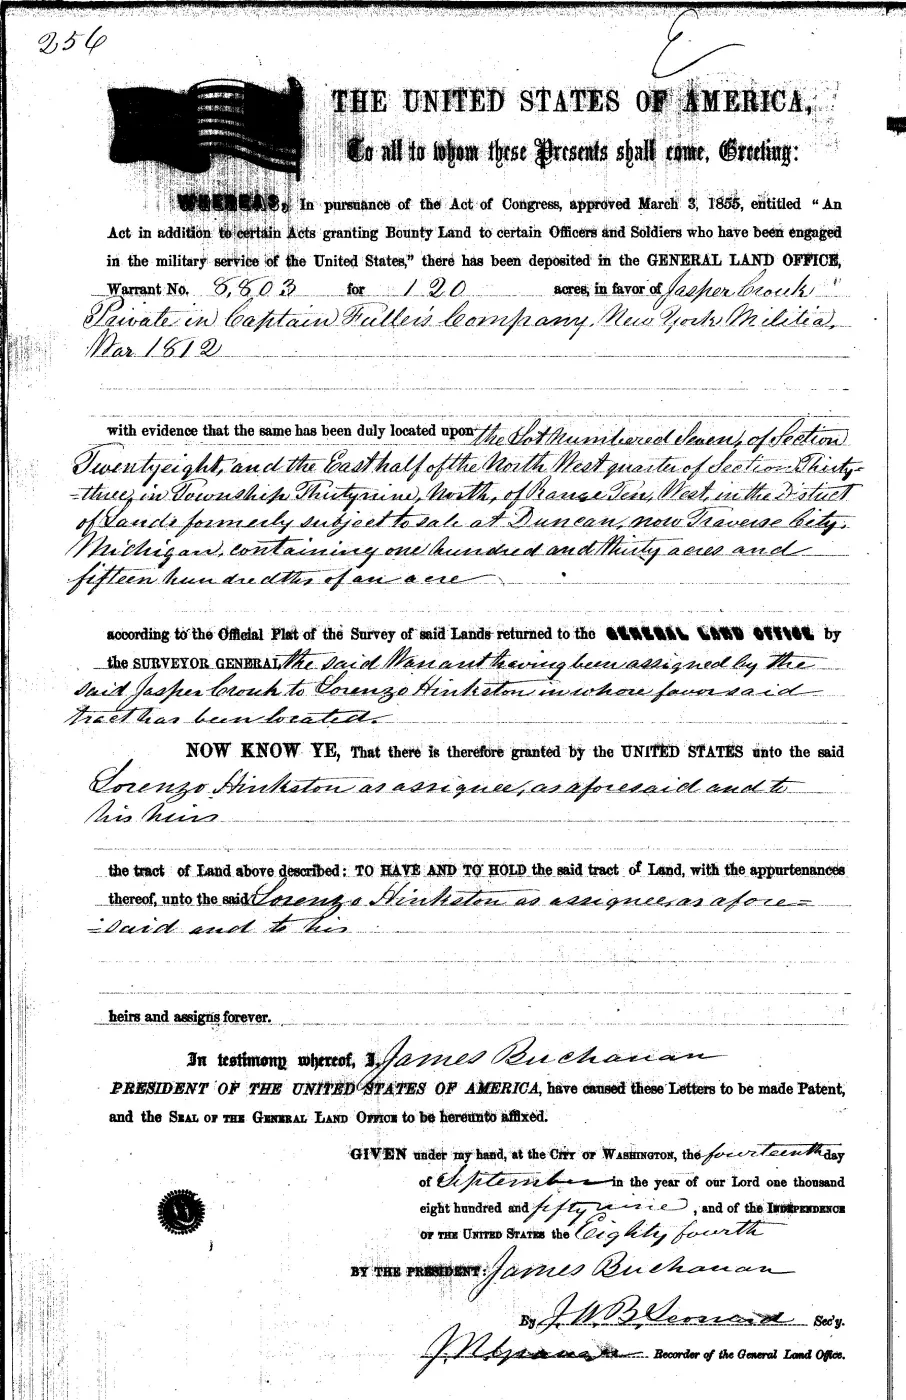 256
THE UNITED STATES OF AMERICA,
To all to whom these Presents shall come, Greeting:
WHEREAS, In pursuance of the Act of Congress, approved March 3, 1855, entitled "An
Act in addition to certain Acts granting Bounty Land to certain Officers and Soldiers who have been engaged
in the military service of the United States," there has been deposited in the GENERAL LAND OFFICE,
Warrant No. 8,803 for 120 acres, in favor of Jasper Crouk
Private in Captain Fuller's Company, New York Militia,
War 1812
with evidence that the same has been duly located upon the Lot Numbered Seven, of Section
Twentyeight, and the East half of the North West quarter of Section Thirty=
=three, in Township Thirtynine, North, of Range Ten, West, in the District
of Lands formerly subject to sale at Duncan, now Traverse City,
Michigan, containing one hundred and thirty acres and
fifteen hundredths of an acre
according to the Official Plat of the Survey of said Lands returned to the GENERAL LAND OFFICE by
the SURVEYOR GENERAL the said Warrant having been assigned by the
said Jasper Crouk to Lorenzo Hinkston in whose favor said
tract has been located.
NOW KNOW YE, That there is therefore granted by the UNITED STATES unto the said
Lorenzo Hinkston as assignee, as aforesaid and to
his heirs
the tract of Land above described: TO HAVE AND TO HOLD the said tract of Land, with the appurtenances
thereof, unto the said Lorenzo Hinkston as assignee, as afore=
=said and to his
heirs and assigns forever.
In testimony whereof, I, James Buchanan
PRESIDENT OF THE UNITED STATES OF AMERICA, have caused these Letters to be made Patent,
and the SEAL OF THE GENERAL LAND OFFICE to be hereunto affixed.
GIVEN under my hand, at the CITY OF WASHINGTON, the fourteenth day
of September in the year of our Lord one thousand
eight hundred and fifty nine, and of the INDEPENDENCE
OF THE UNITED STATES the Eighty fourth
BY THE PRESIDENT: James Buchanan
By J. W. B. Leonard Sec'y.
Recorder of the General Land Office.